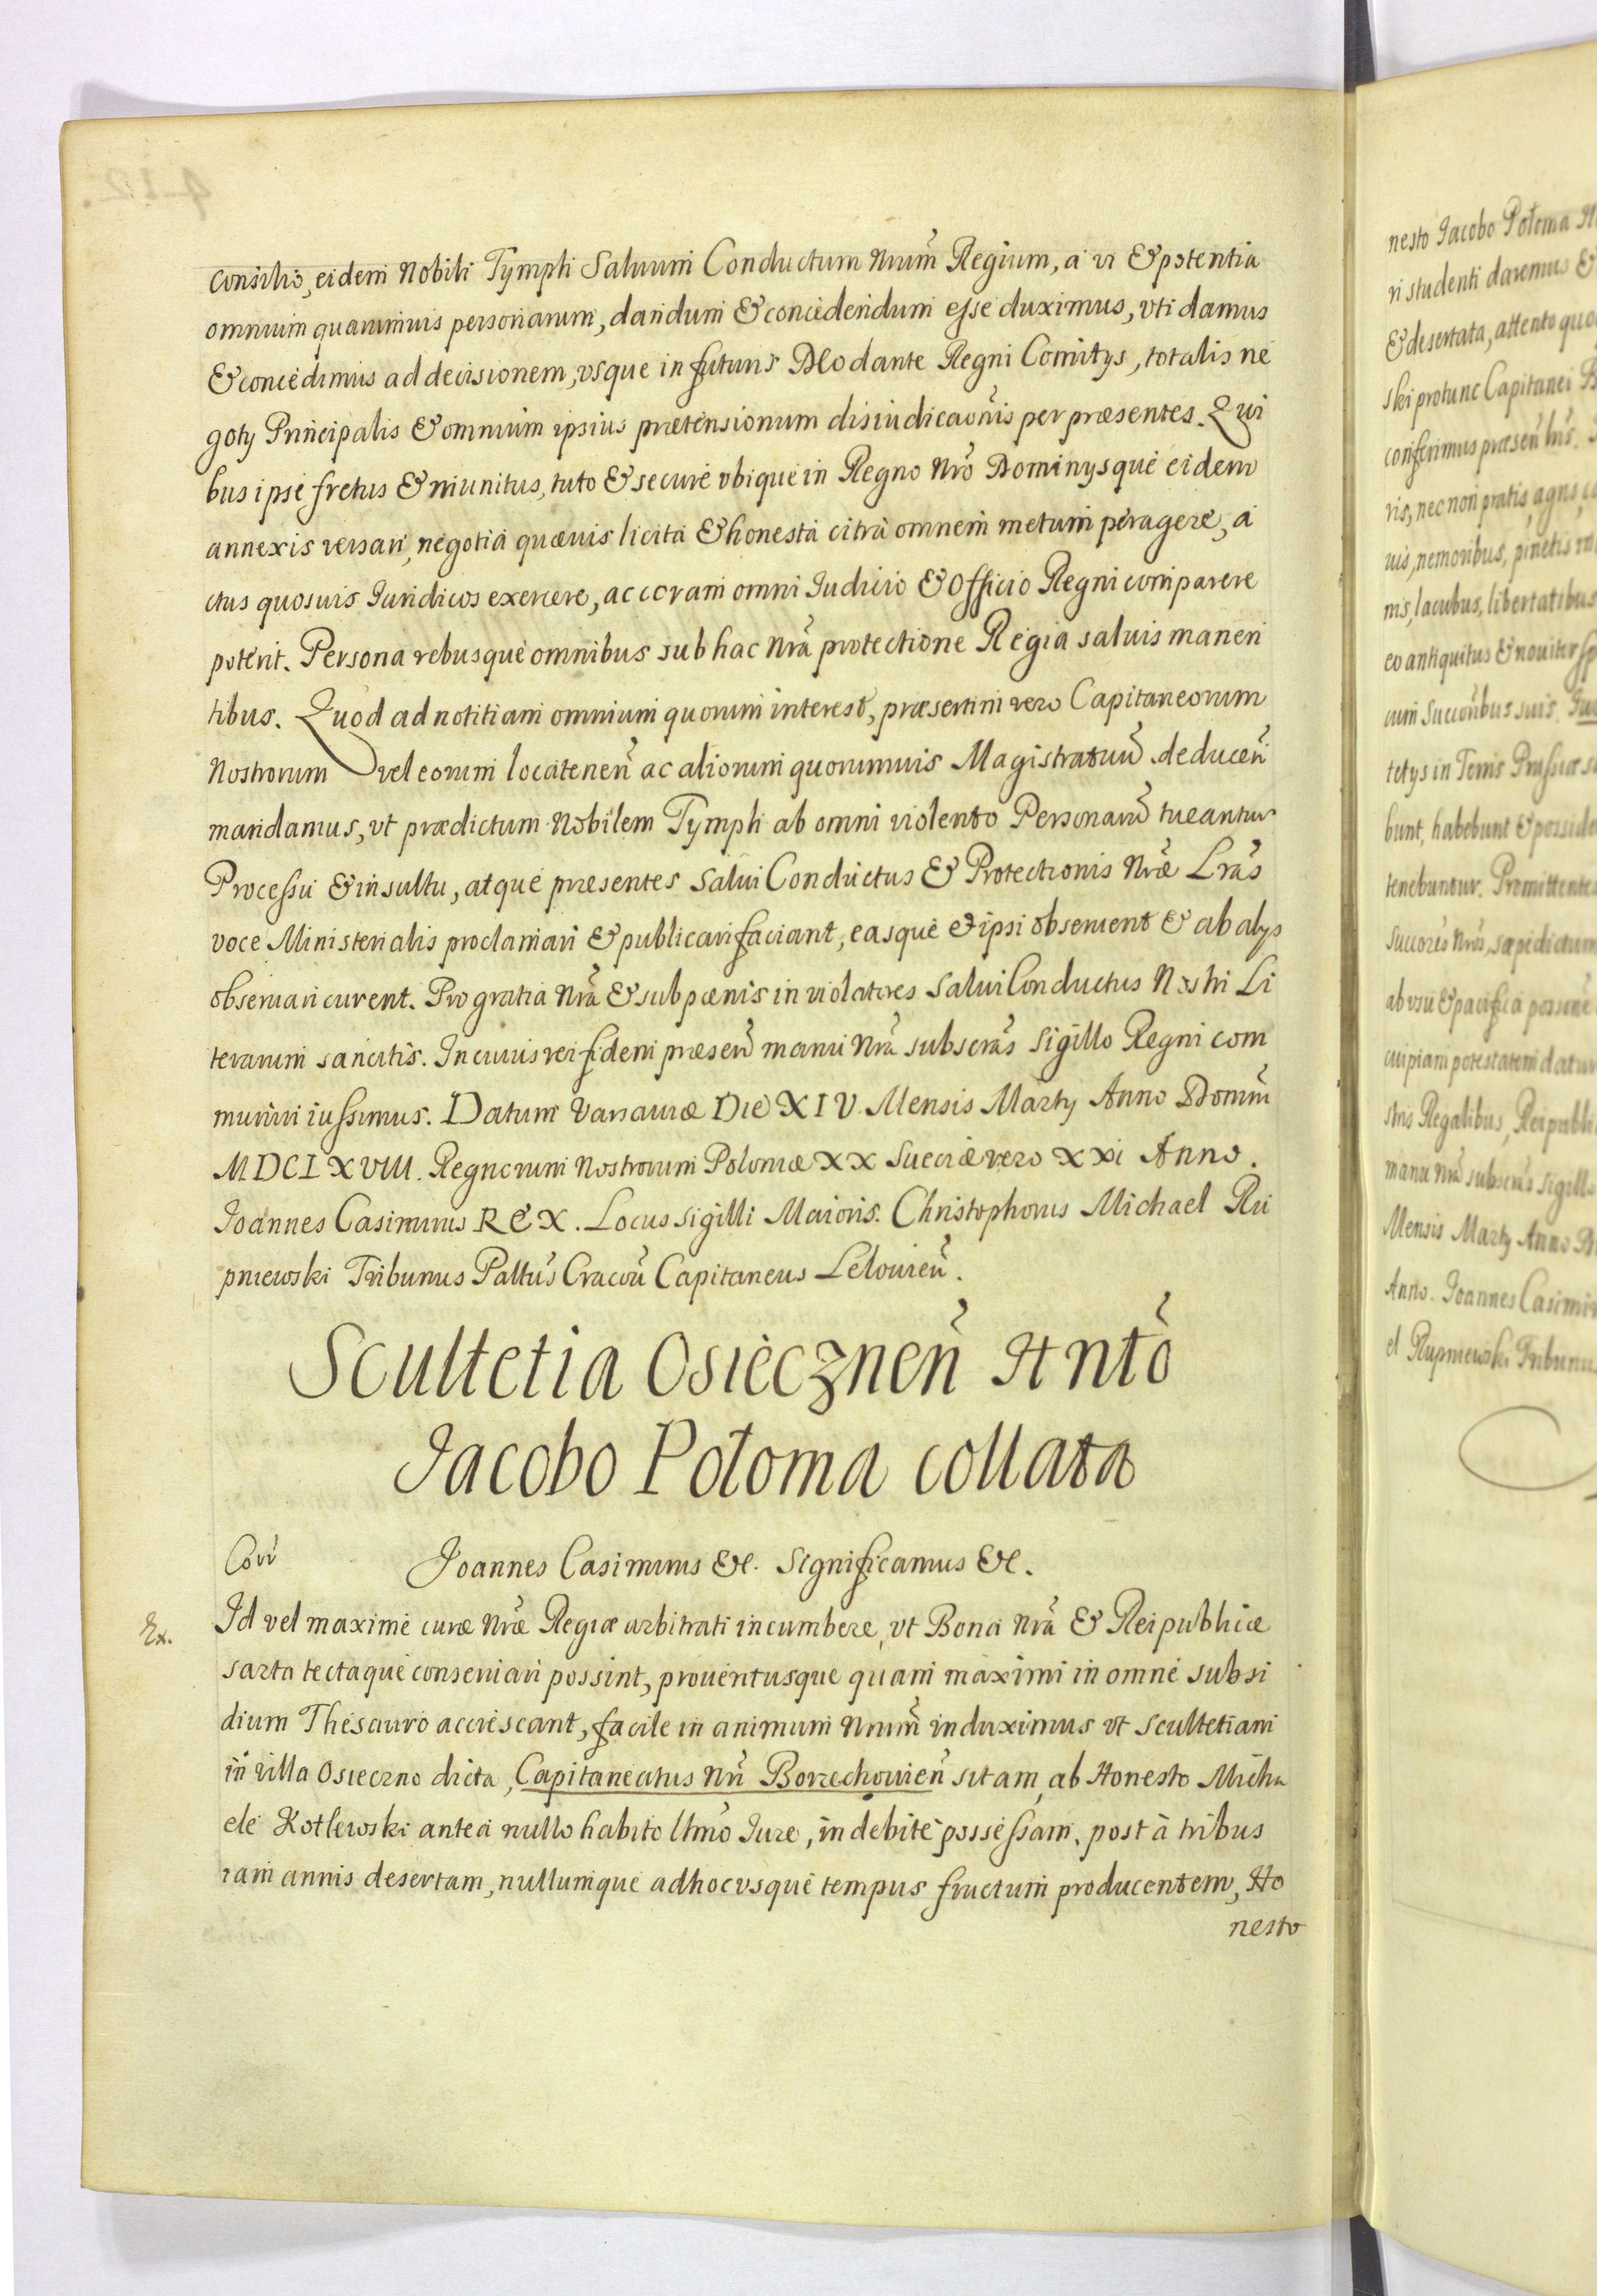 consilio, eidem Nobili Tymph Saluum Conductum Nrũm Regium, a vi & potentia
omnium quarumuis personarum, dandum & concedendum esse duximus, vti damus
& concedimus ad decisionem, vsque in futuris Deo dante Regni Comitys, totalis ne
goty Principalis & omnium ipsius prætensionum disiudicaõnis per præsentes. Qui
bus ipse fretus & munitus, tuto & secure vbique in Regno Nrõ Dominysque eidem
annexis versari, negotia quæuis licita & honesta citra omnem metum peragere, a
ctus quosuis Iuridicos exercere, ac coram omni Iudicio & Officio Regni comparere
poterit. Persona rebusque omnibus sub hac Nrã protectione Regia saluis manen
tibus. Quod ad notitiam omnium quorum interest, præsertim vero Capitaneorum
Nostrorum vel eorum locatenen̄ ac aliorum quorumuis Magistratuũ deducen̄
mandamus, vt prædictum Nobilem Tymph ab omni violento Personarũ tueantur
Processu & insultu, atque præsentes Salui Conductus & Protectionis Nrǣ Lrãs
voce Ministerialis proclamari & publicari faciant, easque & ipsi obseruent & ab alys
obseruari curent. Pro gratia Nrã & sub pœnis in violatores Salui Conductus Nostri Li
terarum sancitis. In cuius rei fidem præsen̄ manu Nrã subscrãs Sigillo Regni com
muniri iussimus. Datum Varsauiæ Die XIV. Mensis Marty Anno Domini
MDCLXVIII. Regnorum Nostrorum Poloniæ XX Sueciæ vero XXi Anno.
Joannes Casimirus REX. Locus Sigilli Maioris. Christophorus Michael Ru
pniewski Tribunus Pallũs Cracou̅ Capitaneus Lelouien̄.
Scultetia Osiecznen̄ Hntõ
Jacobo Potoma collata
Corr̄
Joannes Casimirus &c. Significamus &c.
Ex.
Id vel maxime curæ Nrǣ Regiæ arbitrati incumbere, vt Bona Nrã & Reipublicæ
sarta tectaque conseruari possint, prouentusque quam maximi in omne subsi
dium Thesauro accrescant, facile in animum Nrũm induximus vt Scultetiam
in villa Osieczno dicta, Capitaneatus Nrĩ Borzechouien̄ sitam, ab Honesto Micha
ele Kotlewski antea nullo habito ltmõ Iure, indebite possessam, post a tribus
iam annis desertam, nullumque adhoc vsque tempus fructum producentem, Ho
nesto
nesto Jacobo Potoma
ri studenti daremus &
& desertata, attento quo
ski protunc Capitanei
conferimus præsen̄ lrũs.
ris, nec non pratis, agris,
uis, nemoribus, pinetis
nis, lacubus, libertatibus
eo antiquitus & nouiter
cum Succõribus suis
tetys in Terris Prussiæ
bunt, habebunt & posside
tenebuntur. Promittentes
Succorẽs Nrõs, sæpedictum
ab vsu & pacifica possone
cuipiam potestatem datur
stris Regalibus, Reipubli
manu Nrã subscrãs Sigillo
Mensis Marty Anno
Anno. Joannes Casimir
el Rupniewski Tribunu